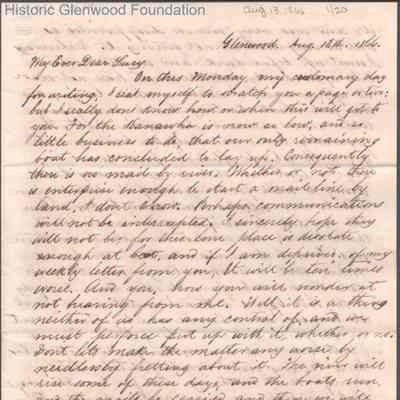 Historic Glenwood Foundation
Aug 13, 1866 1/20
Glenwood. Aug. 13th. 1866.
My Ever Dear Lucy
On this Monday, my customary day
for writing, I seat myself to scratch you a page or two:
but I really don't know how or when this will get to
you. For the Kanawha is now so low, and so
little business to do, that our only remaining
boat has concluded to lay up. Consequently
there is no mail by river. Whether or not, there
is enterprise enough to start a mail line by
land, I don't know. Perhaps communications
will not be intercepted. I sincerely hope they
will not be; for this lone place is desolate
enough at best, and if I am deprived of my
weekly letter from you, it will be ten times
worse. And you, how you will wonder at
not hearing from me. Well it is a thing
neither of us has any control of, and we
must perforce put up with it, whether or no.
Dont lets make the matter any worse by
needlessly fretting about it. The river will
rise some of these days, and the boats run,
and the mails be carried and then we will